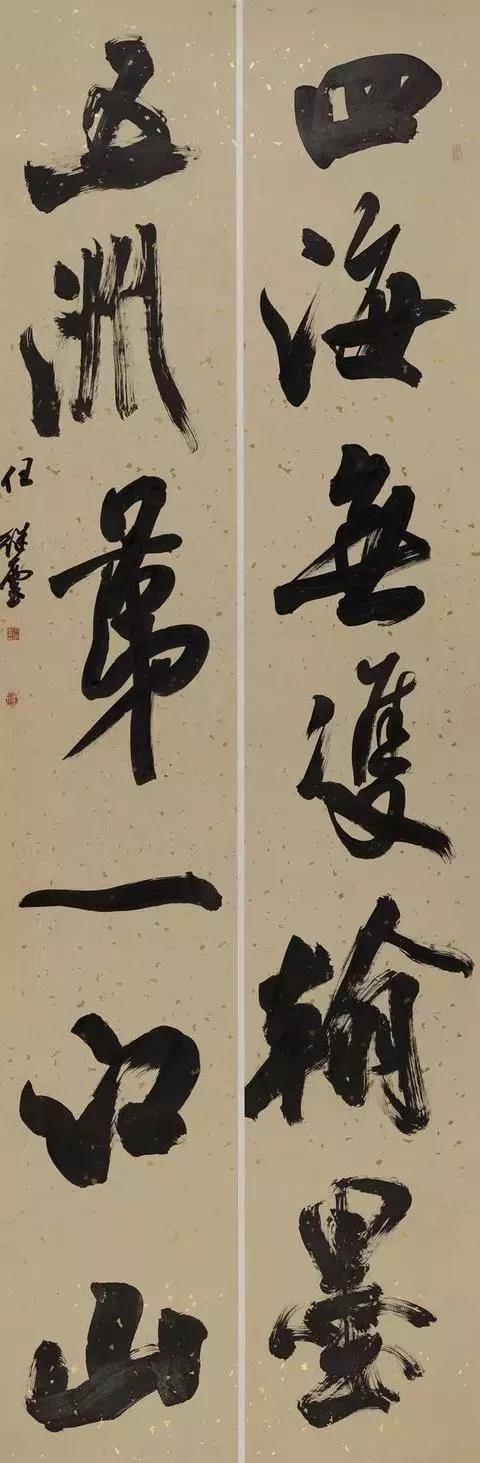 四海無雙翰墨
五洲第一江山
任